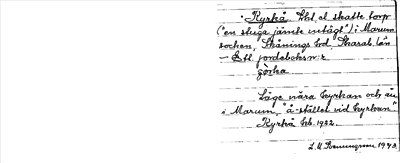 Kyrkå. Lht. el. skatte torp
("en stuga jämte intägt") i Marum
socken, Skånings hd. Skarab. län
— Enl. jordeboks nr
göska
Läge nära kyrkan och ån
i Marum, "å-stället vid kyrkan."
Kyrkå hb. 1932.
1943